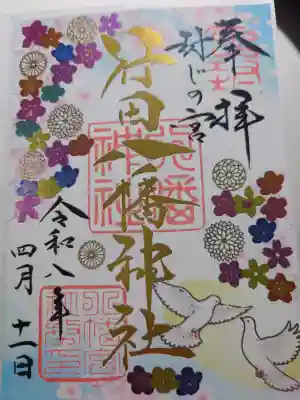 奉拝
封じの宮
行田八幡神社
令和八年
四月十一日